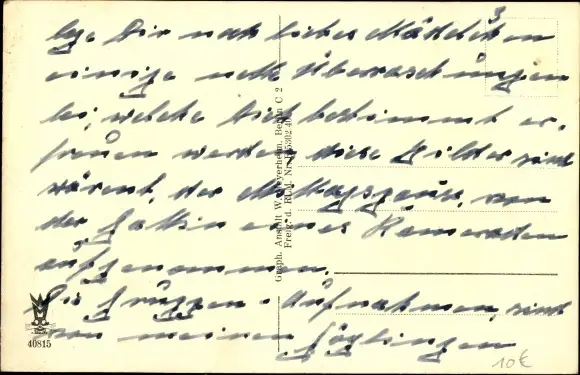 3
lege Dir noch liebes Mädelchen
einige nette Überraschungen
bei, welche Dich bestimmt er-
freuen werden, diese Bilder sind
wärent der Mittagspause, von
der Gattin eines Kameraden
aufgenommen.
Die Gruppen - Aufnahmen, sind
von meinen Zöglingen
Graph. Anstalt W. Meyerheim, Berlin C 2
Freig. d. RLM. Nr.
40815
10€